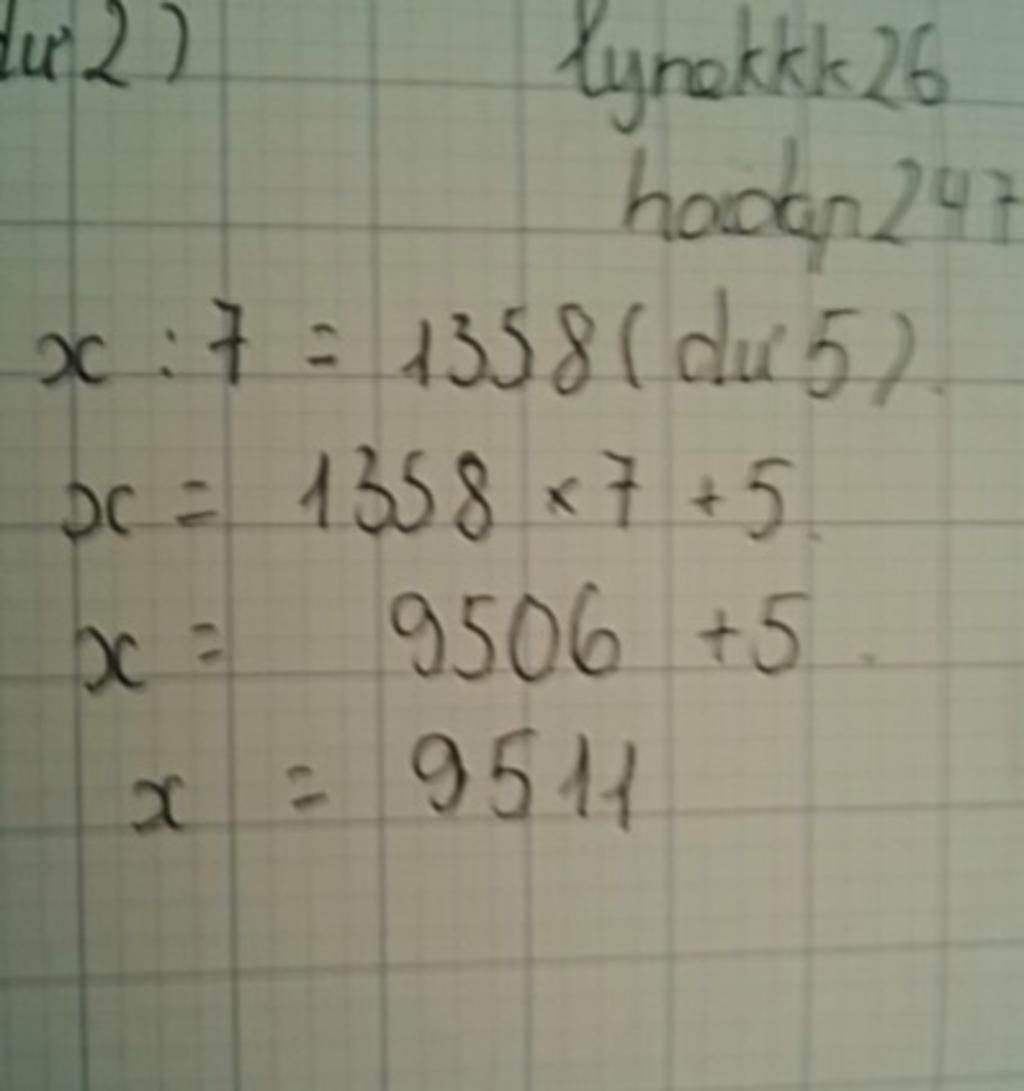 dư 2)
lynekkk26
hoidap247
x : 7 = 1358 ( dư 5 )
x = 1358 × 7 + 5
x = 9506 + 5
x = 9511